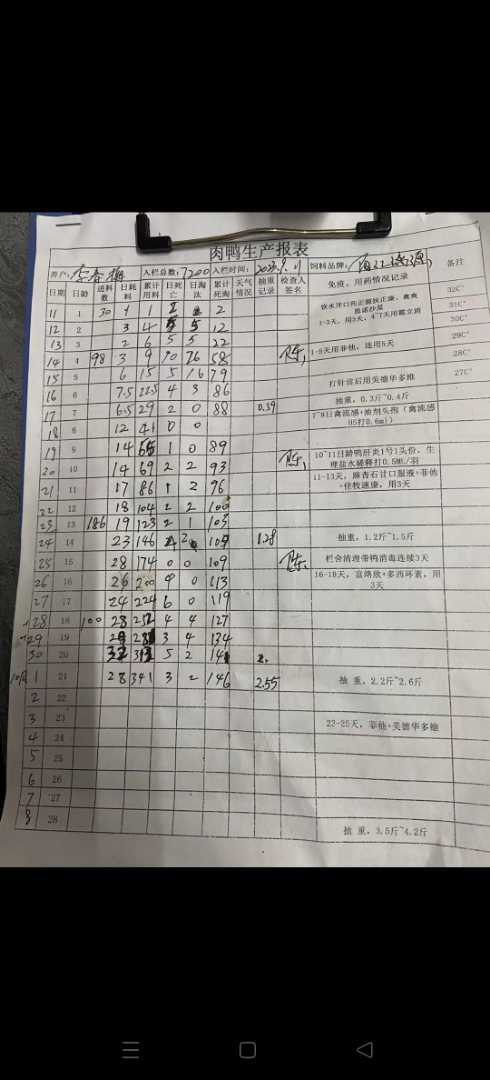 肉鸭生产报表
养户: 入栏总数:7200 入栏时间: 饲料品牌: 备注
日期 日龄 进料数 日耗料 累计用料 日死亡 日淘汰 累计死淘 天气情况 抽重记录 检查人签名 免疫、用药情况记录
11 1 30 1 1 2 2 32C°
12 2 3 4 5 5 12 1-3天,用3天,4~7天用霉立清 31C°
13 3 2 6 5 5 22 30C°
14 4 98 3 9 10 26 58 陈 1-5用非他,连用5天 29C°
15 5 6 15 5 16 79 28C°
16 6 7.5 22.5 4 3 86 打针前后用美德华多维 27C°
17 7 6.5 29 2 0 88 0.39 抽重,0.3斤~0.4斤
18 8 12 41 0 0 7~9日禽流感+浆剂头孢(禽流感H5打0.6ml)
19 9 14 55 1 0 89
20 10 14 69 2 2 93 陈 10~11日龄鸭肝炎1号1头份,生理盐水稀释打0.5ML/羽
21 11 17 86 1 2 96 11-13天,麻杏石甘口服液+菲他+佳牧速康,用3天
22 12 18 104 2 2 100
23 13 186 19 123 2 1 103
24 14 23 146 4 2 109 1.28 抽重,1.2斤~1.5斤
25 15 28 174 0 0 109 陈 栏舍清理带鸭消毒连续3天
26 16 26 200 4 0 113 16-18天,富络欣+多西环素,用3天
27 17 24 224 6 0 119
28 18 100 28 252 4 4 127
29 19 29 281 3 4 134
30 20 32 313 5 2 141 2.
10/月1 21 28 341 3 2 146 2.55 抽重,2.2斤~2.6斤
2 22
3 23 22-25天,菲他+美德华多维
4 24
5 25
6 26
7 27
8 28 抽重,3.5斤~4.2斤